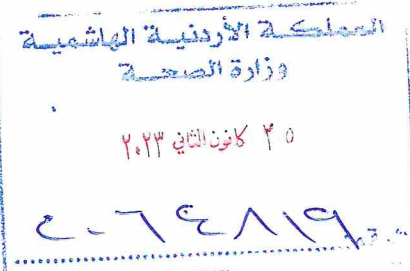 المملكة الأردنية الهاشمية
وزارة الصحة
٢٥ كانون الثاني ٢٠٢٣